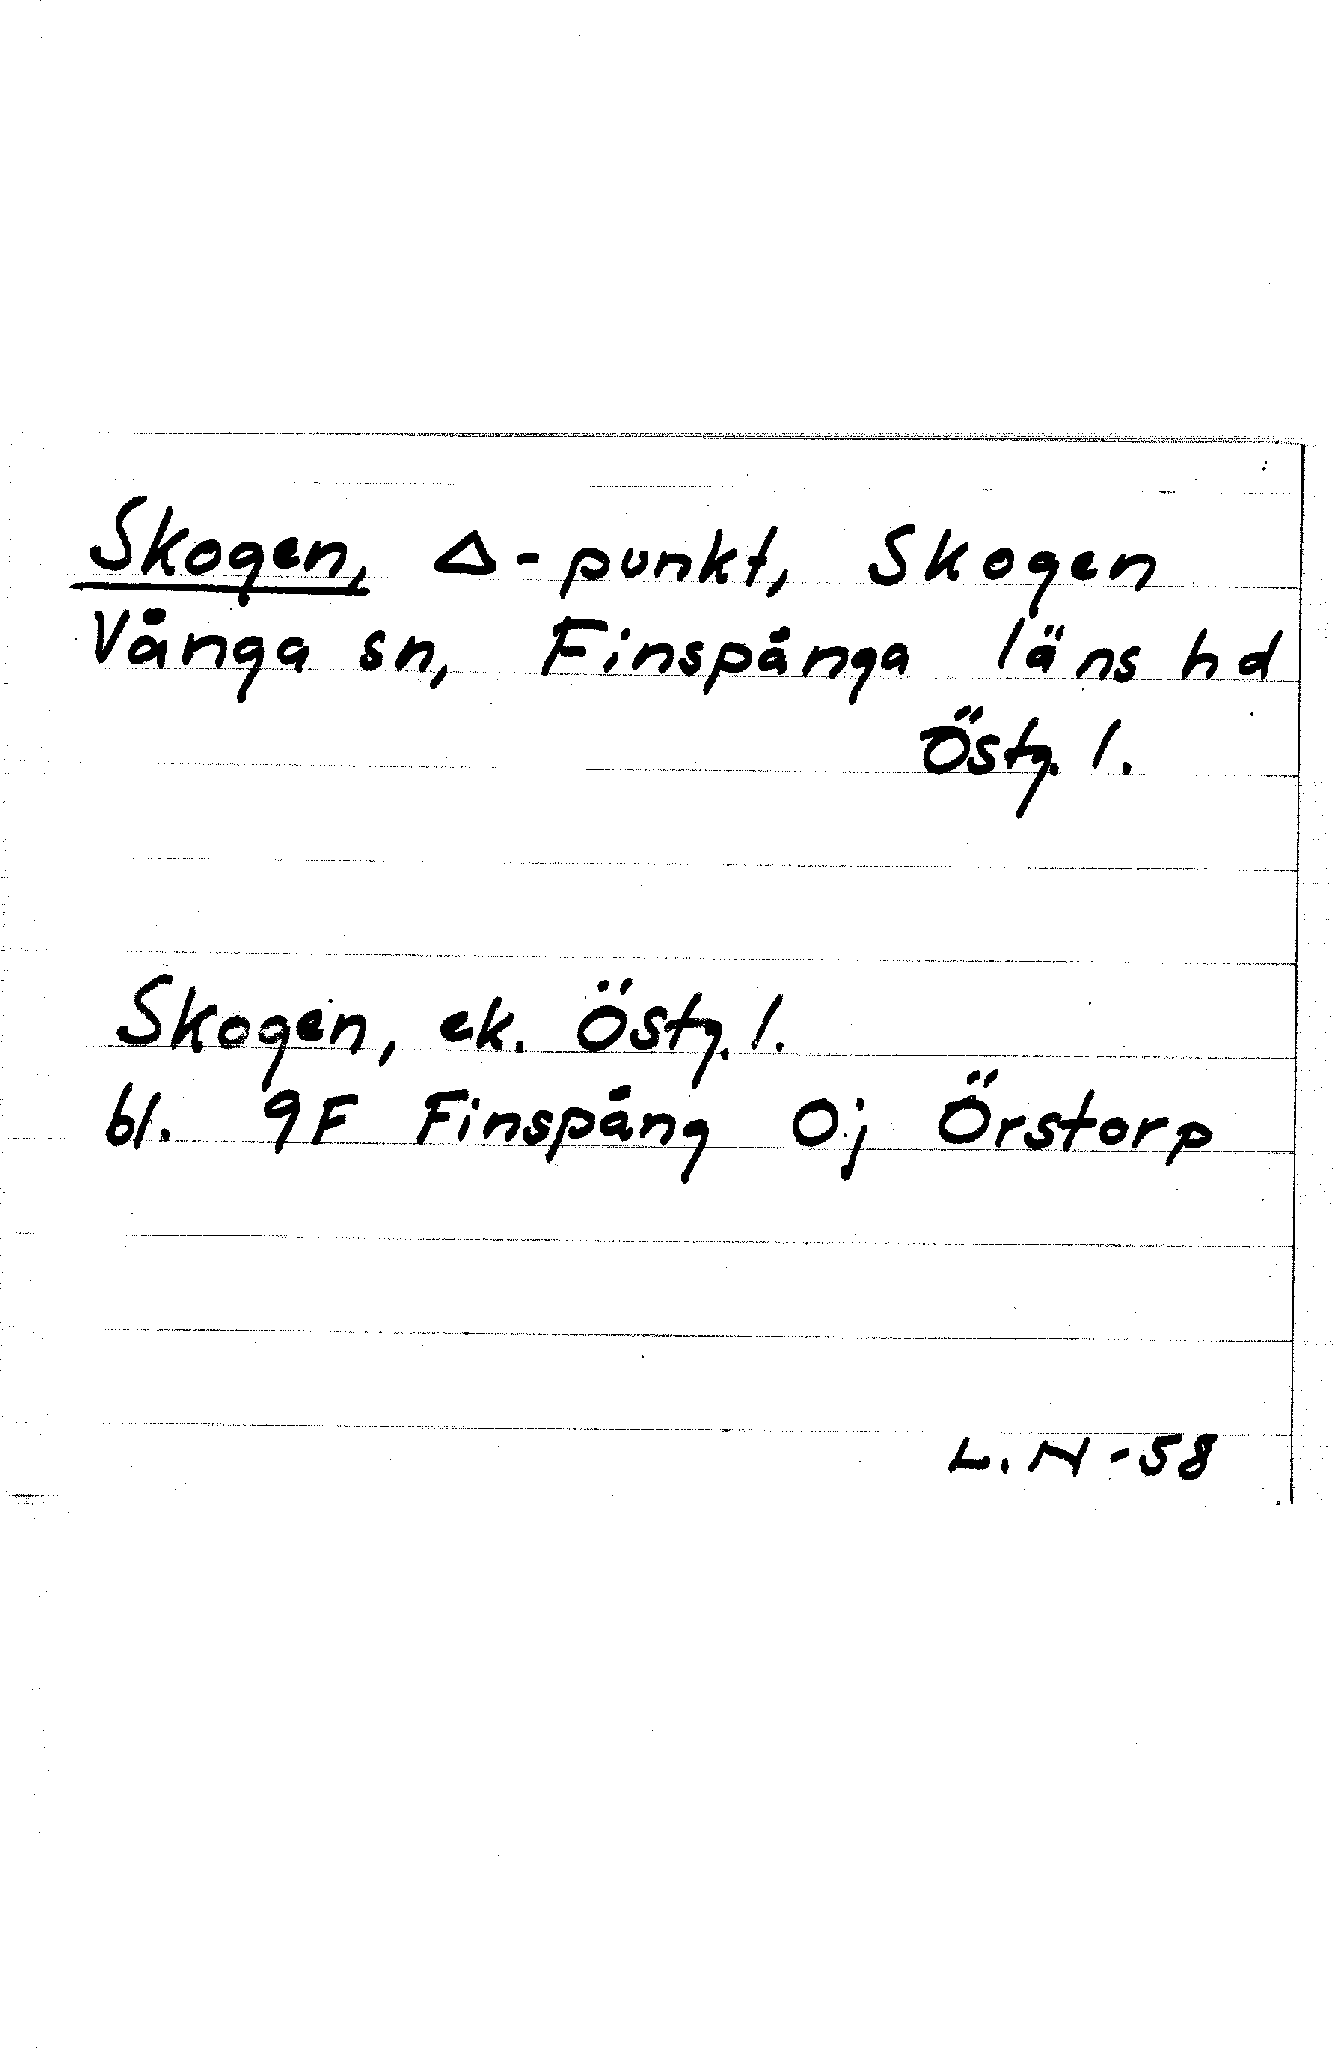 Skogen, Δ-punkt, Skogen
Vånga sn, Finspånga läns hd
Östg. l.
Skogen, ek. Östg. l.
bl. 9F Finspång 0j Örstorp
L. N -58